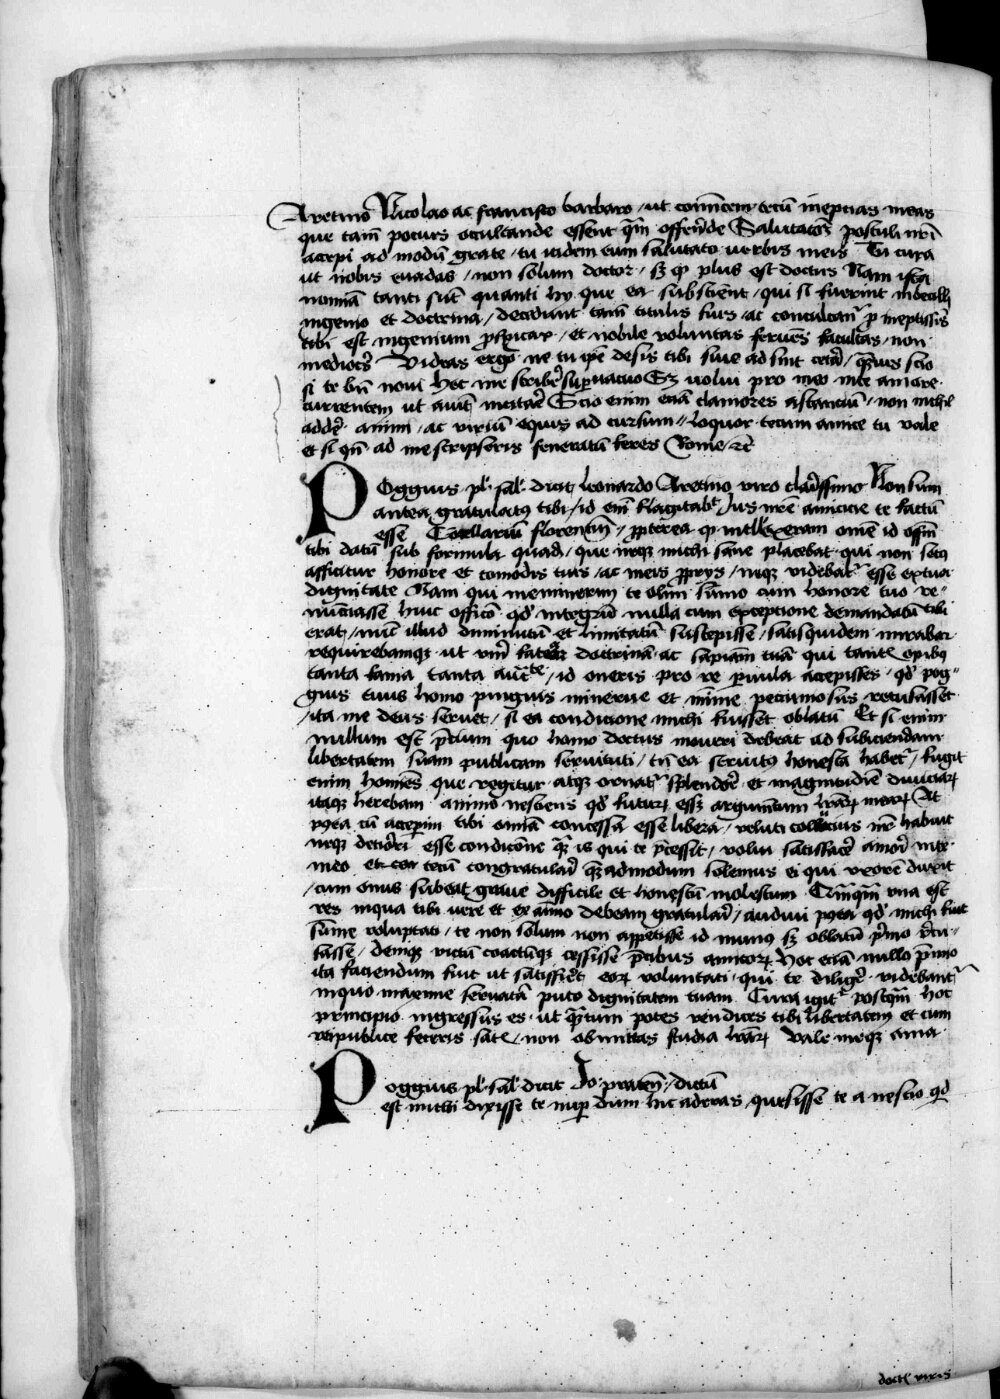 Aretino Nicolao ac francisco barbaro ut com̄icem tecū ineptias meas
que tam̄ pocius occultande essent q̄m offerēde Salutatōes postuli nr̄i
accepi ad modū grate / tu itidem eum salutato verbis meis Tu cura
ut nobis euadas / non solum doctor / sʒ qd plus est doctus Nam ista
nomīa tanti sūt quanti hy que ea subsciēnt / qui si fuerint imbecilli
ingenio et doctrina / decidunt tam̄ titulis suis / ac conculcant̄ p ineptissīs
tibi est ingenium pspicax / et nobile voluntas feruēs facultas / non
mediocr̄s Videas ergo ne tu ip̄e desis tibi siue ad sint cetā / q̄uis scio
si te bn̄ noui hec me scribē supuacuo Sʒ volui pro meo inte amore
currentem ut aiūt incitarē Scio enim etiā clamores astanciū / non nichil
addē animi / ac viriū equis ad cursum / loquor tecum amice tu vale
et si qn̄ ad me scripseris feneratū feres Rome ꝛc̄
Poggius pl̄ sal̄ dicit leonardo Aretino viro clarīssimo Non sum
antea gratulatus tibi / id em̄ flagitabt̄ Ius nr̄e amicicie te factū
esse Cancellariū florentinū / ppterea qd intellexeram om̄e id offm̄
tibi datū sub formula quadā / que neqʒ michi sane placebat qui non secus
afficitur honore et comodis tuis / ac meis ppryis / neqʒ videbat̄ esse ex tua
dignitate Nam qui meminerim te olim sūmo cum honore tuo re
nūciasse huic officio qd integrū nulla cum exceptione demandatū tibi
erat / nūc illud diminutū et limitatū suscepisse / satis quidem mirabar
requirebamqʒ ut verū fatear doctrinā ac sapiām tuā qui tantis opibus
tanta fama tanta auctte / id oneris pro re paruula accepisses / qd pog
gius tuus homo pinguis minerue et mīme pecuniosus recusasset
/ ita me deus seruet / si ea condicione michi fuisset oblatū Et si enim
nullum est p̄cium quo homo doctus moueri debeat ad subiciendam
libertatem suam publicam seruituti / tn̄ ea seruitus honesta habet̄ / fugit
enim homīes que regitur atqʒ ornat̄ splendōe et magnitudīe diuiciarꝝ
itaqʒ herebam animo nesciens qd futurꝝ essʒ argumentum lrārꝝ mearꝝ At
pꝯtea cū acceperim tibi omīa concessa esse libera / veluti collucius nr̄ habuit
neqʒ deterīori esse condicōne qm̄ is qui te pcessit / volui satisfacē amori inter
meo et tecū congratulari q̄admodum solemus ei qui vxorē duxit
/ cum onus subeat graue difficile et honestū molestum Qm̄qm̄ vna est
res inqua tibi vere et ex aīmo debeam gratulari / audiui pꝯtea qd michi fuit
sūme voluptati / te non solum non appetisse id munus sʒ oblatū p̄mo recu
sasse / demqʒ victū coactūqʒ cessisse p̄cibus amicorꝝ Hoc etiā nullo p̄mio
ita faciendum fuit ut satisfierēt eorꝝ voluntati qui te diligē videbant̄
inquo maxime seruatā puto dignitatem tuam Cura igit̄ postqm̄ hoc
principio ingressus es ut qntum potes vendices tibi libertatem et cum
reipublice feceris satis / non obmittas studia lrārꝝ Vale meqʒ ama
Poggius pl̄ sal̄ dicit Jo praten̄ / dictū
est michi dixisse te nup dum hic aderas quesisse te a nescio qd
doctis viris